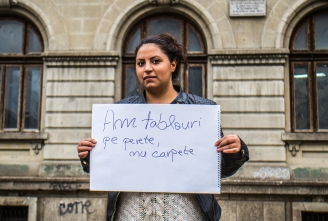 Am tablouri
pe perete,
nu carpete